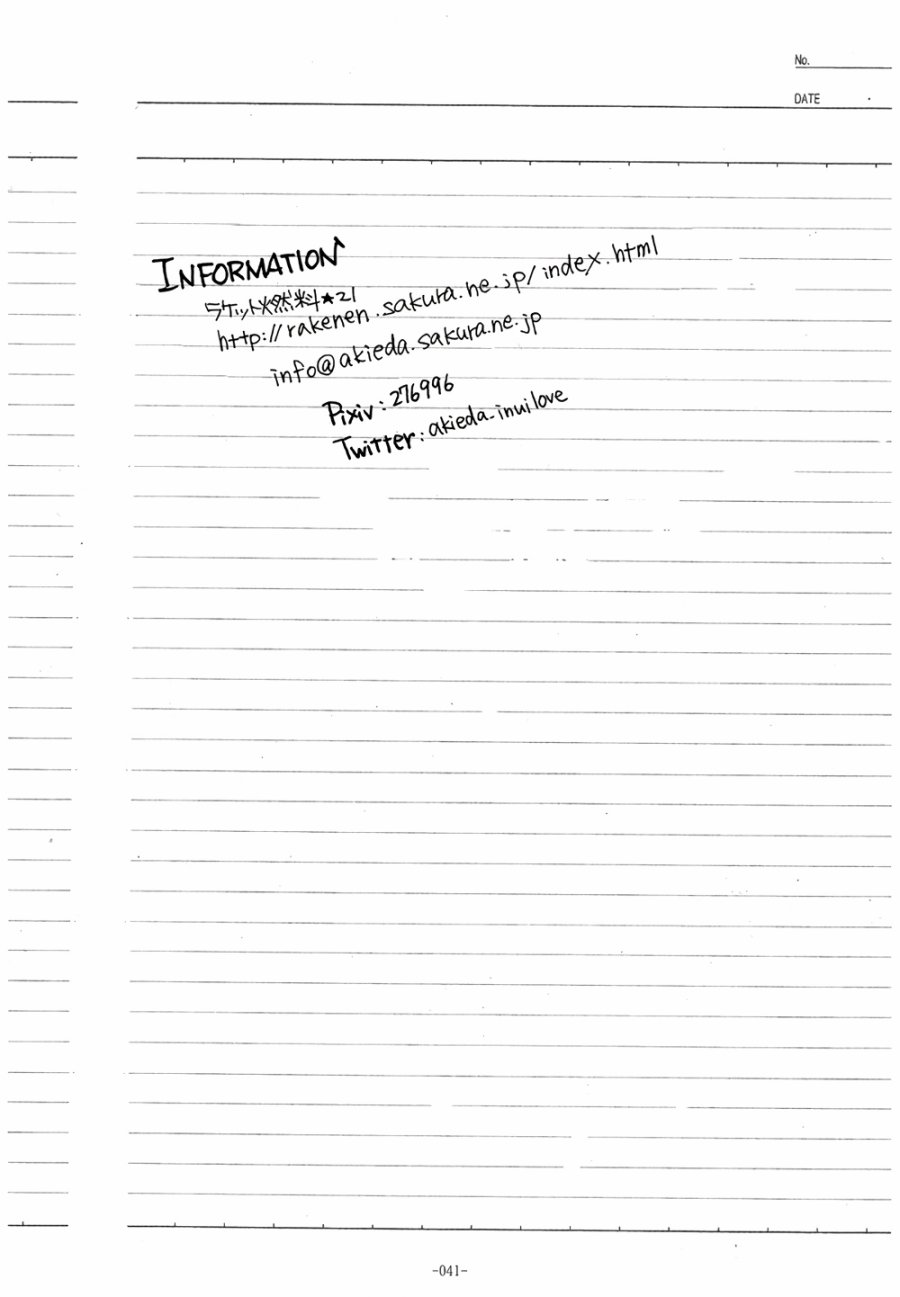 No.
DATE
INFORMATION
ラケット燃料★21
http://rakenen.sakura.ne.jp/index.html
info@akieda.sakura.ne.jp
Pixiv:276996
Twitter:akieda_inuilove
-041-